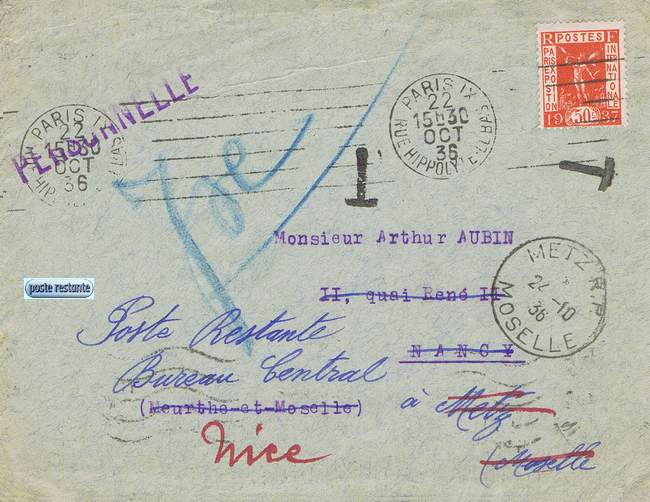 PERSONNELLE
PARIS IX
22
15H30
OCT
36
PARIS IX
22
15H30
OCT
36
RUE HIPPOLYTE
R POSTES F
PARIS EXPOSITION
INTERNATIONALE
19 50c 37
T
T
Monsieur Arthur AUBIN
II, quai René II
NANCY
(Meurthe-et-Moselle)
poste restante
Poste Restante
Bureau Central
à Metz
(Moselle)
Nice
METZ R.P.
24-10
36
MOSELLE